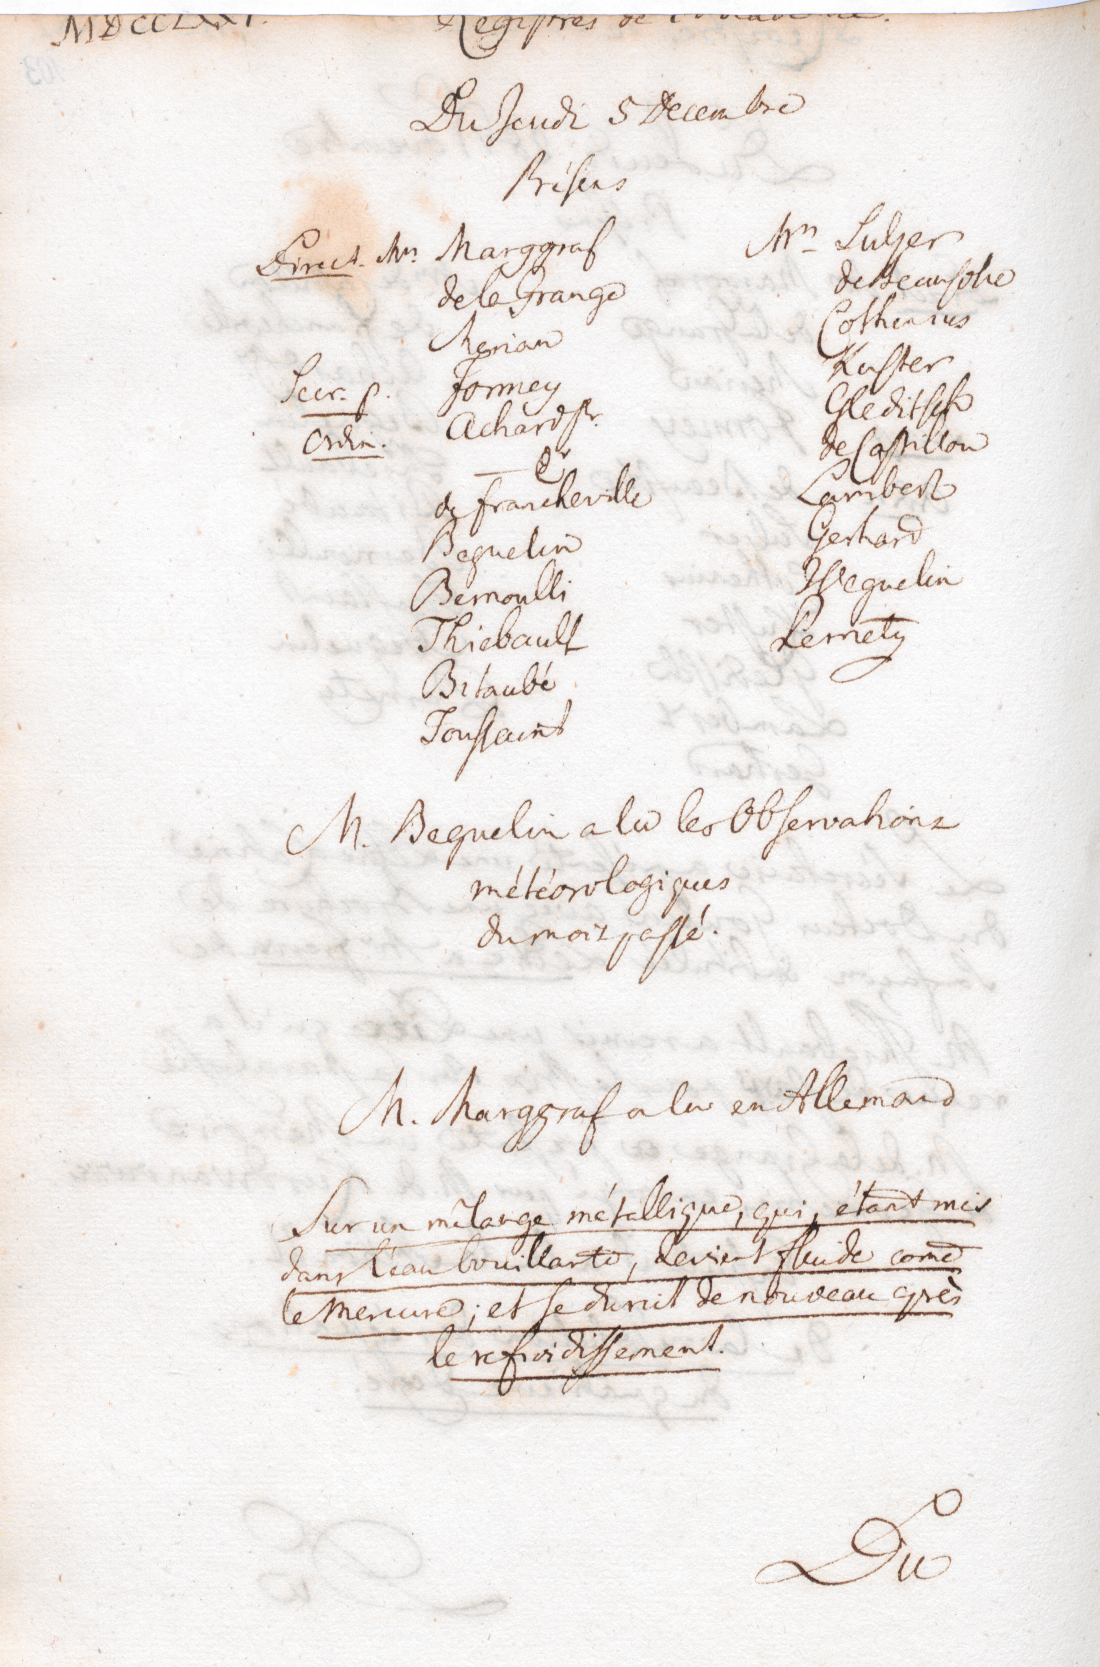 MDCCLXXI.
Registres de l'Academie.
Du Jeudi 5 Decembre
Présens
Direct. Mrs. Marggraf
de la Grange
Merian
Secr. p. Formey
Ordin. Achard Pr.
— Dr
de Francheville
Beguelin
Bernoulli
Thiebault
Bitaubé
Toussaint
Mrs Sulzer
de Beausobre
Cothenius
Kuster
Gleditsch
de Castillon
Lambert
Gerhard
Weguelin
Pernety
M. Beguelin a lu les Observations
météorologiques
du mois passé.
M. Marggraf a lu en Allemand
Sur un mêlange métallique, qui, étant mis
dans l'eau bouillante, devient fluide come
le Mercure; et se durcit de nouveau après
le refroidissement.
Du